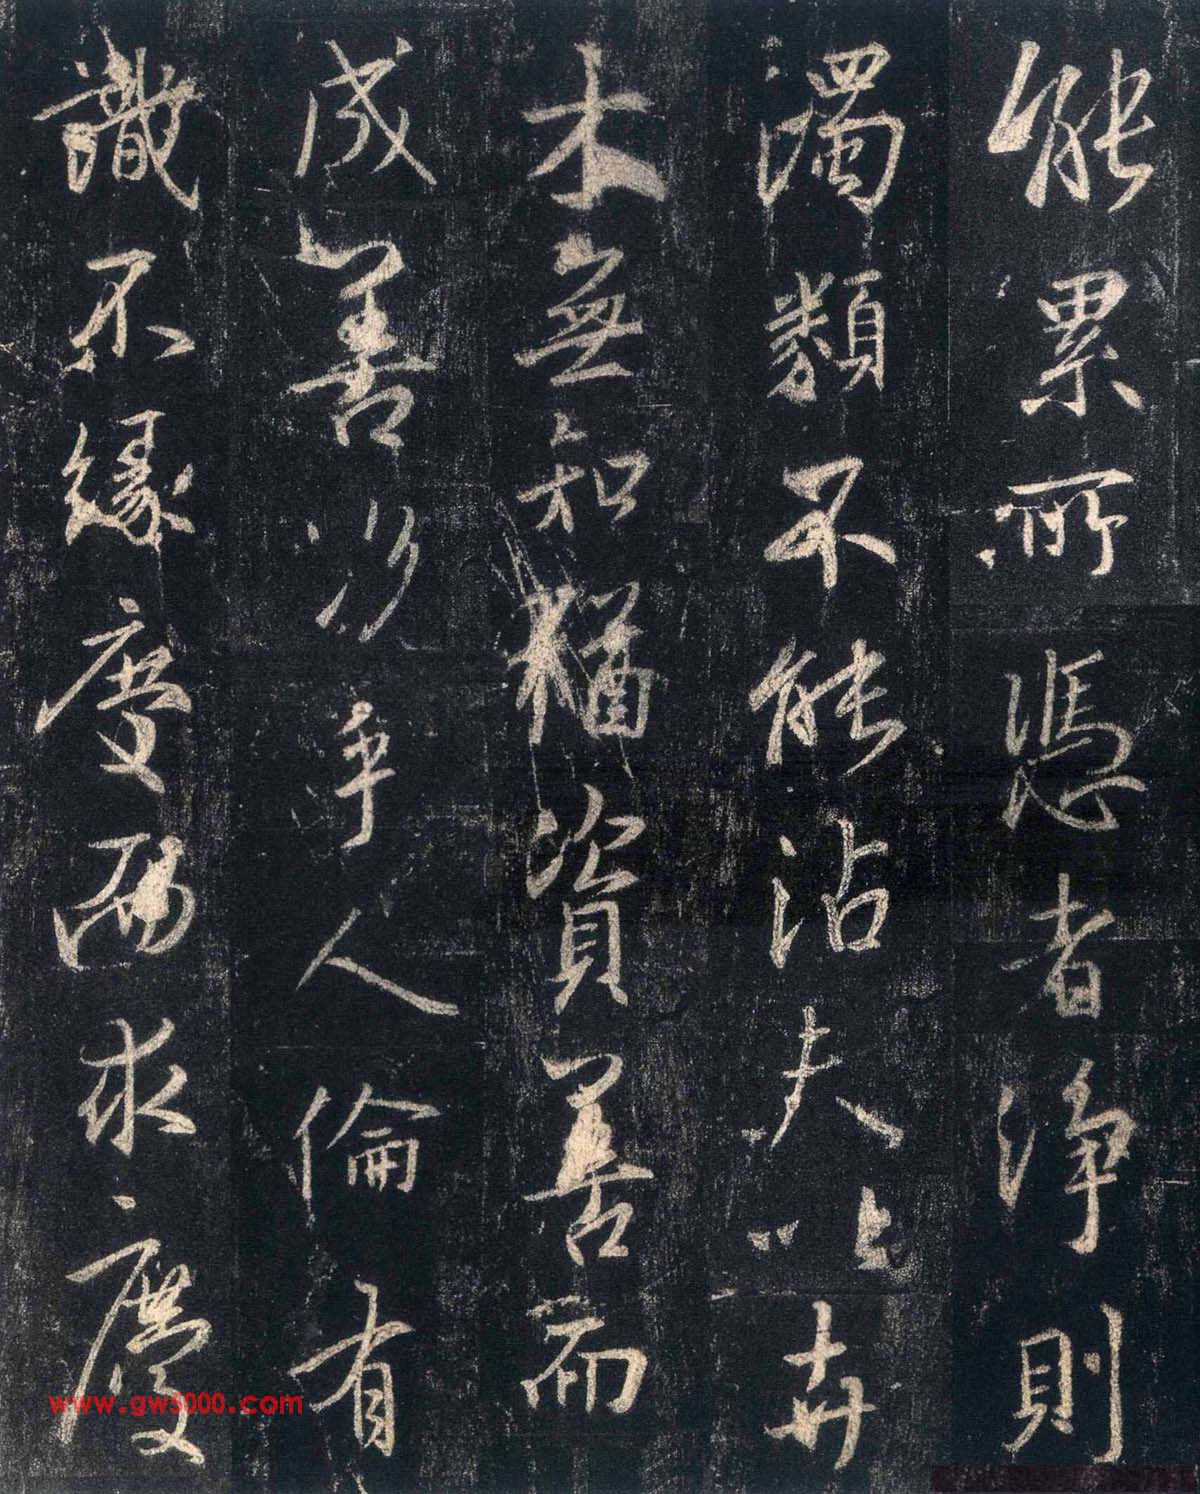 能累所憑者淨則
濁類不能沾夫以卉
木無知猶資善而
成善況乎人倫有
識不緣慶而求慶
www.gw5000.com